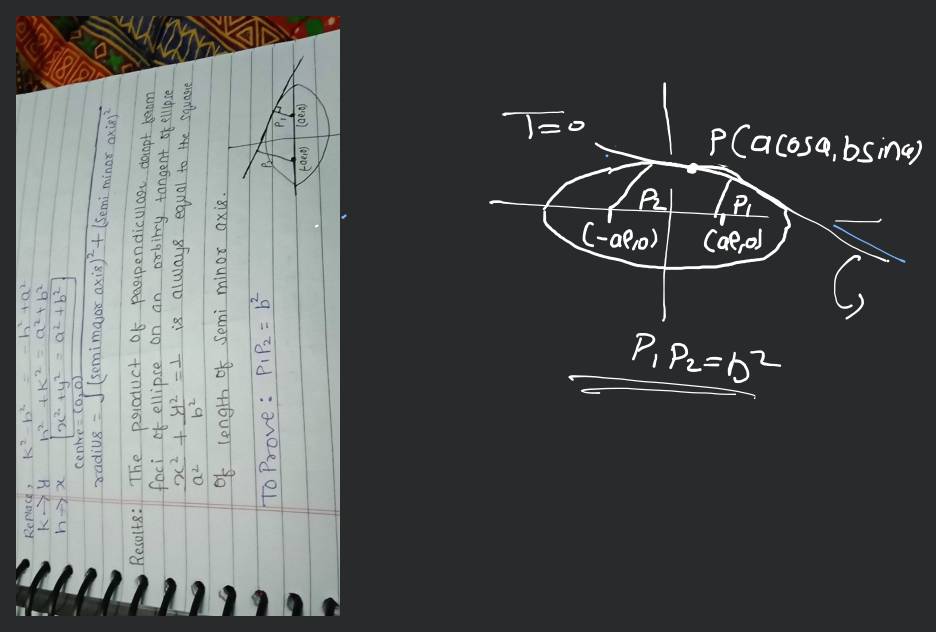 Replace, k² - b² = - h² + a²
k → y h² + k² = a² + b²
h → x x² + y² = a² + b²
centre = (0,0)
radius = √(semi major axis)² + (semi minor axis)²
Results: The product of perpendicular dropt from
foci of ellipse on an orbitry tangent of ellipse
x²/a² + y²/b² = 1 is always equal to the square
of length of semi minor axis.
To Prove: P₁P₂ = b²
P₂
P₁
(-ae,0)
(ae,0)
T=0
P(acosα, bsinα)
P₂
P₁
(-ae,0)
(ae,0)
P₁ P₂ = b²